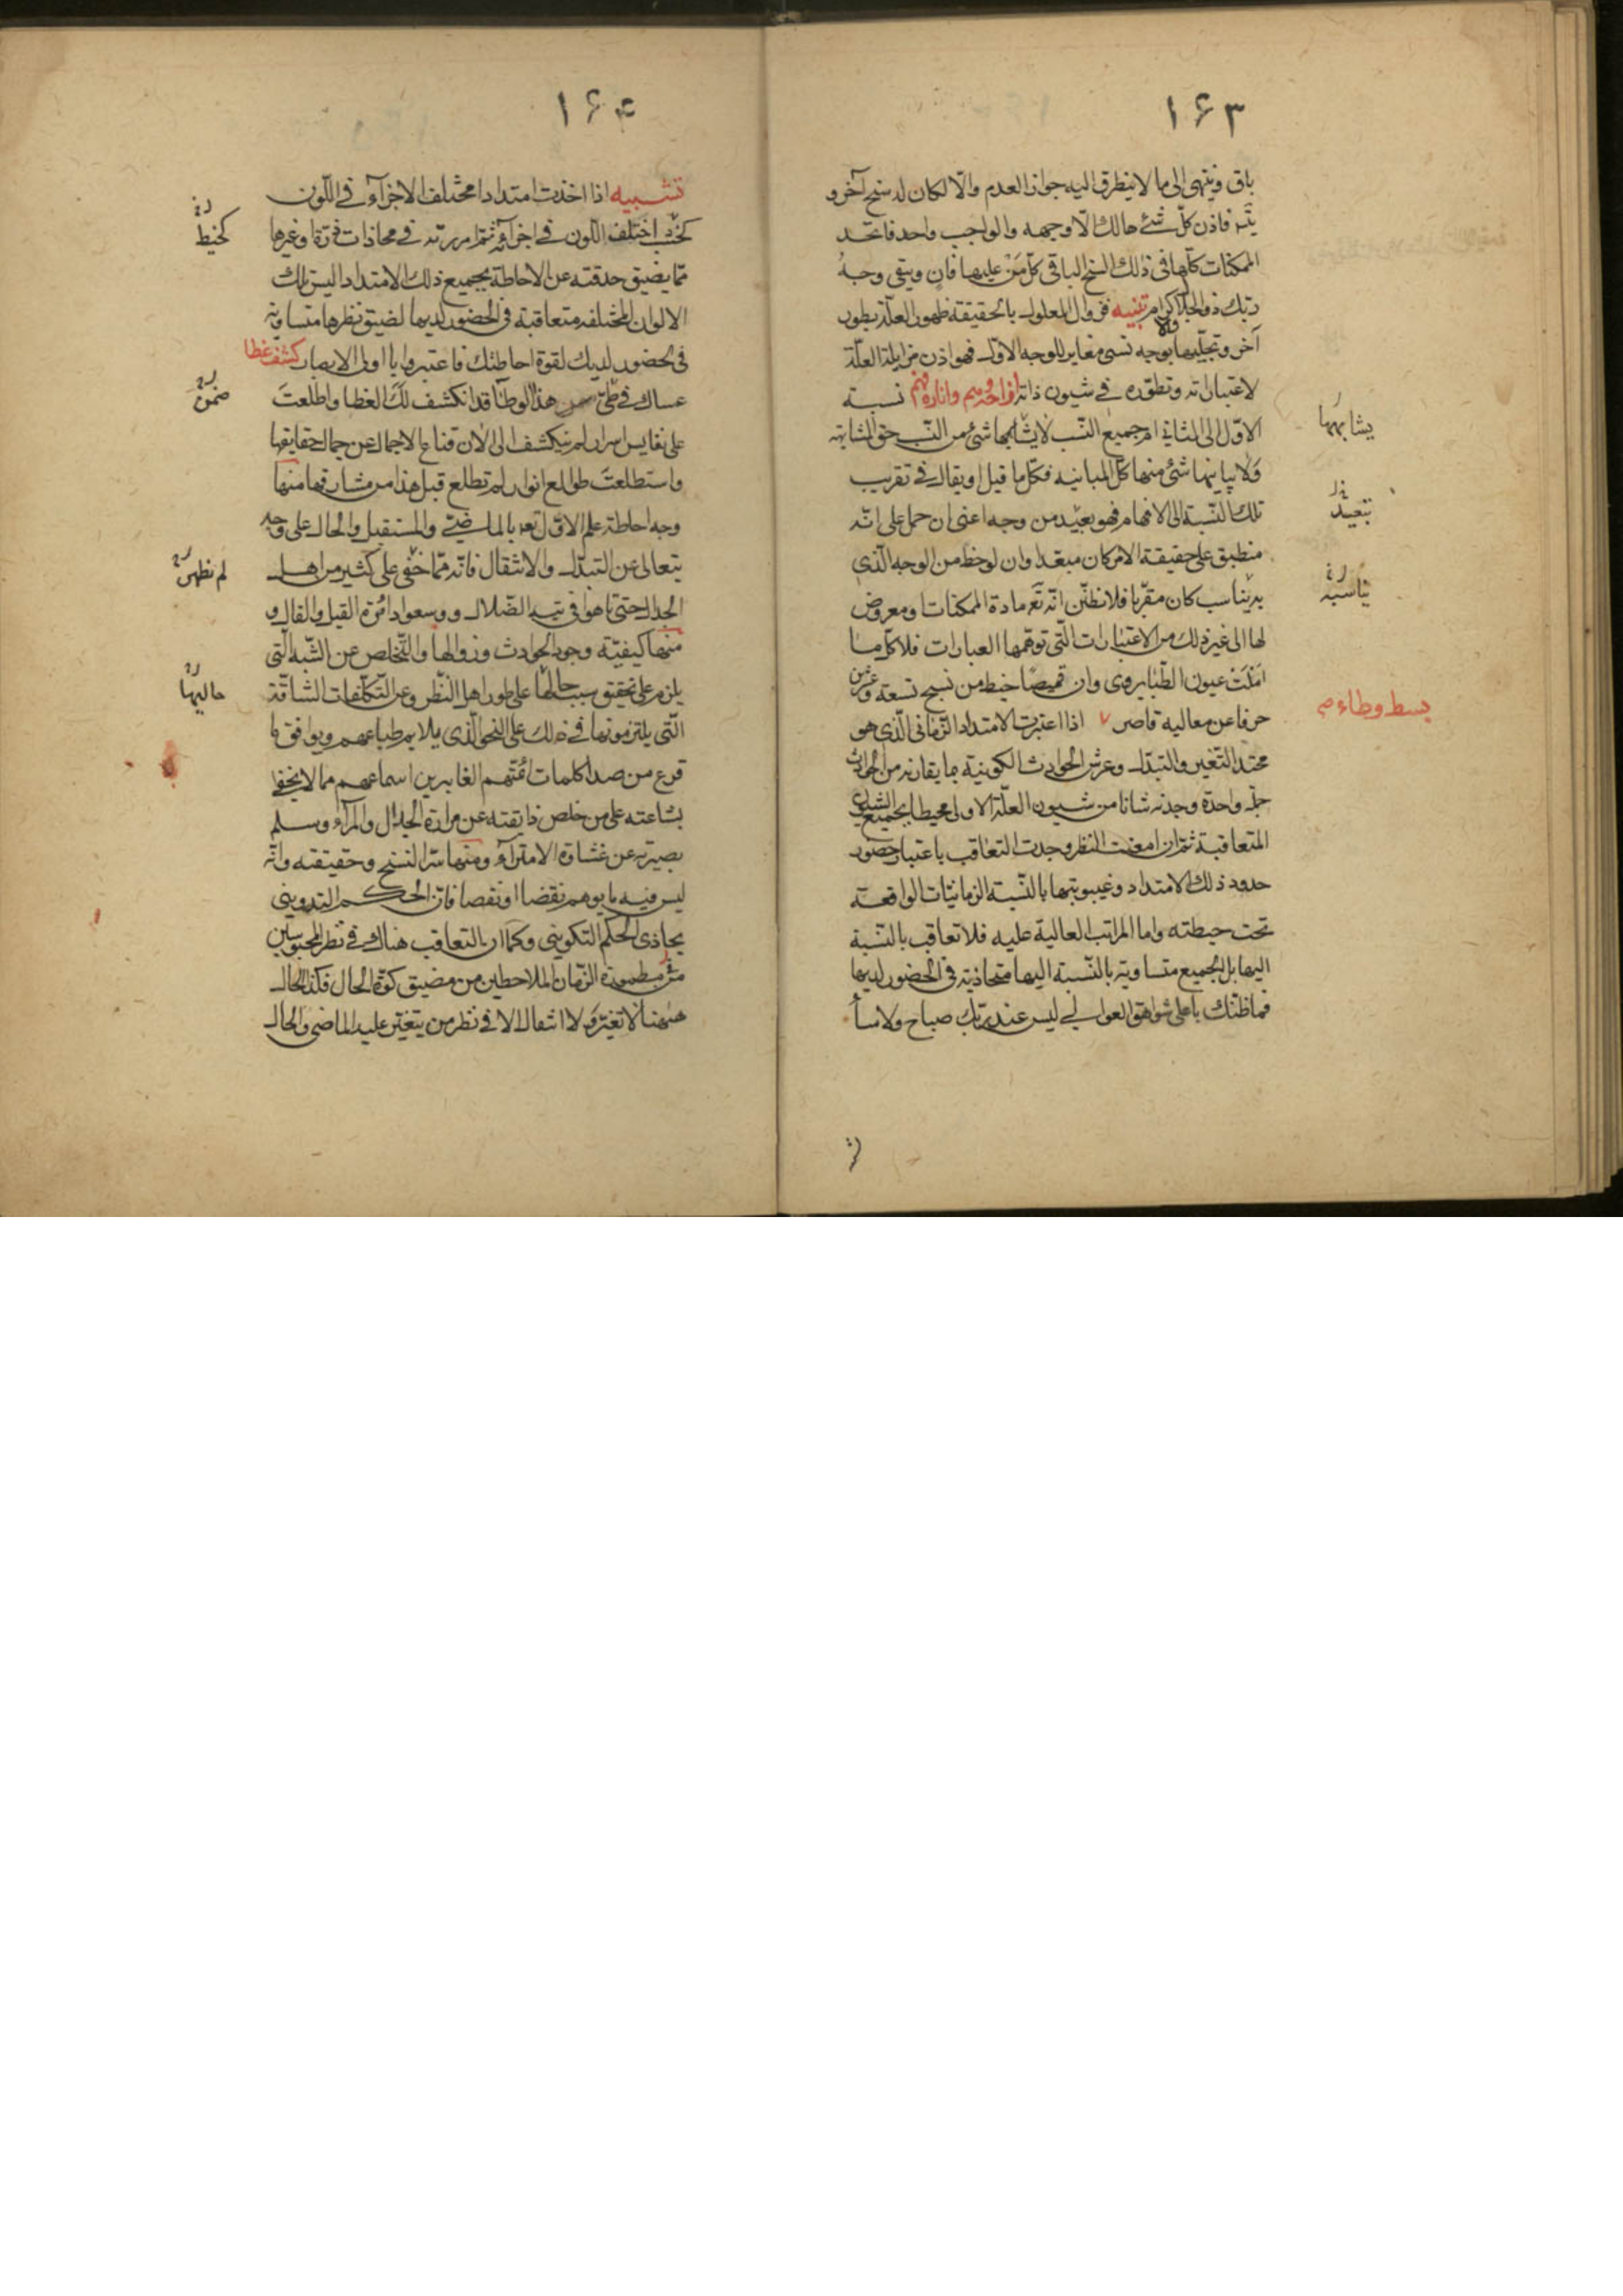 ١۶٣
باق وينتهى الى ما لا يتطرق اليه جواز العدم والّا لكان له سنخ آخر و
يتم فاذن كلّ شئ هالك الّا وجهه والواجب واحد فاتحد
الممكنات كلّها فى ذلك السنخ الباقى كل مَنْ عليها فان ويبقى وجهُ
ربّك ذو الجلال والاكرام تنبيه فزوال المعلول بالحقيقة ظهور العلّة بطور
آخر وتجلّيها بوجه نسبى مغاير للوجه الاوّل فهو اذن مزايلة العلّة
لاعتباراته وتطوّره فى شيون ذاته ازاحة وهم وانارة فهم نسبة
الاوّل الى الثانى ام جميع النّسب لا يشابهها شئ من النّسب حق المشابهة
ولا يباينها شئ منها كلّ المباينة فكلّ ما قيل او يقال فى تقريب
تلك النّسبة الى الافهام فهو بعيد من وجه اعنى ان حمل على انّه
منطبق على حقيقة الامر كان مبعّدا وان لوحظ من الوجه الّذى
به يناسب كان مقرّبا فلا تظنّن انّه تعَ مادة الممكنات ومعروض
لها الى غير ذلك من الاعتبارات الّتى توهّمها العبارات فلا كلّ ما
امَّلَتْ عيون الظّبا يروى وان قميصًا خيط من نسج تسعة وعشرين
حرفا عن معاليه قاصر ٧ اذا اعتبرت الامتداد الزّمانى الّذى هو
محتد التّغير والتبدّل وعرش الحوادث الكونية بما يقارنه من الحوادث
جملة واحدة وجدته شانا من شيون العلّة الاولى محيطا بجميع الشيون
المتعاقبة ثمّ ان امعنت النظر وجدت التعاقب باعتبار حضور
حدود ذلك الامتداد وغيبوبتها بالنّسبة الزمانيات الواقعة
تحت حيطته واما المراتب العالية عليه فلا تعاقب بالنّسبة
اليها بل الجميع متساوية بالنّسبة اليها متحاذية فى الحضور لديها
فما ظنّك باعلى شواهق العوالى ليس عند ربّك صباح ولا مسأ
يشابهها
تبعيد
يناسبه
بسط وطاء
١۶۴
تشبيه اذا اخذت امتدادا مختلف الاجزآء فى اللّون
كخشب اختلف اللّون فى اجزآئه ثمّ امررته فى محاذات ذرة او غيرها
ممّا يضيق حدقته عن الاحاطة بجميع ذلك الامتداد اليس تلك
الالوان المختلفه متعاقبة فى الحضور لديها لضيق نظرها متساوية
فى الحضور لديك لقوة احاطتك فاعتبروا يا اولى الابصار كشف غطا
عساك فى طىّ هذ الوطآ قد انكشف لكَ الغطا واطلعتَ
على نفايس اسرار لم ينكشف الى الان قناع الاجمال عن جمال حقايقها
واستطلعتَ طوالع انوار لم تطلع قبل هذا من مشارقها منها
وجه احاطة علم الاوّل تعه بالماضى والمستقبل والحال على وجه
يتعالى عن التبدّل والانتقال فانّه ممّا خفى على كثير من اهل
الجدال حتى تاهوا فى تيه الضّلال ووسعوا دائرة القيل والقال و
منها كيفيّة وجود الحوادث وزوالها والتّخلص عن الشّبه الّتى
يلزم على تحقيق سبب حالها على طور اهل النّظر وعن التّكلّفات الشاقّة
الّتى يلتزمونها فى ذلك على النحو الّذى يلايم طباعهم ويوافق ما
قرع من صدا كلمات ائمّتهم الغابرين اسماعهم مما لا يخفى
بشاعته على من خلص ذايقته عن مرارة الجدال والمرآء وسلم
بصيرته عن غشاوة الامترآء ومنها سّر النسخ وحقيقته وانّه
ليس فيه ما يوهم نقضا او نقصا فان الحكم التدوينى
يحاذى الحكم التكوينى وكما ان التعاقب هناك فى نظر المحبوسين
فى مطمورة الزّمان الملاحظين من مضيق كوّة الحال فكذا الحال
ههنا لا تغيّر ولا انتقال الا فى نظر من يتغيّر عليه الماضى والحال
كخيط
ضمن
لم تظهر
حاليها